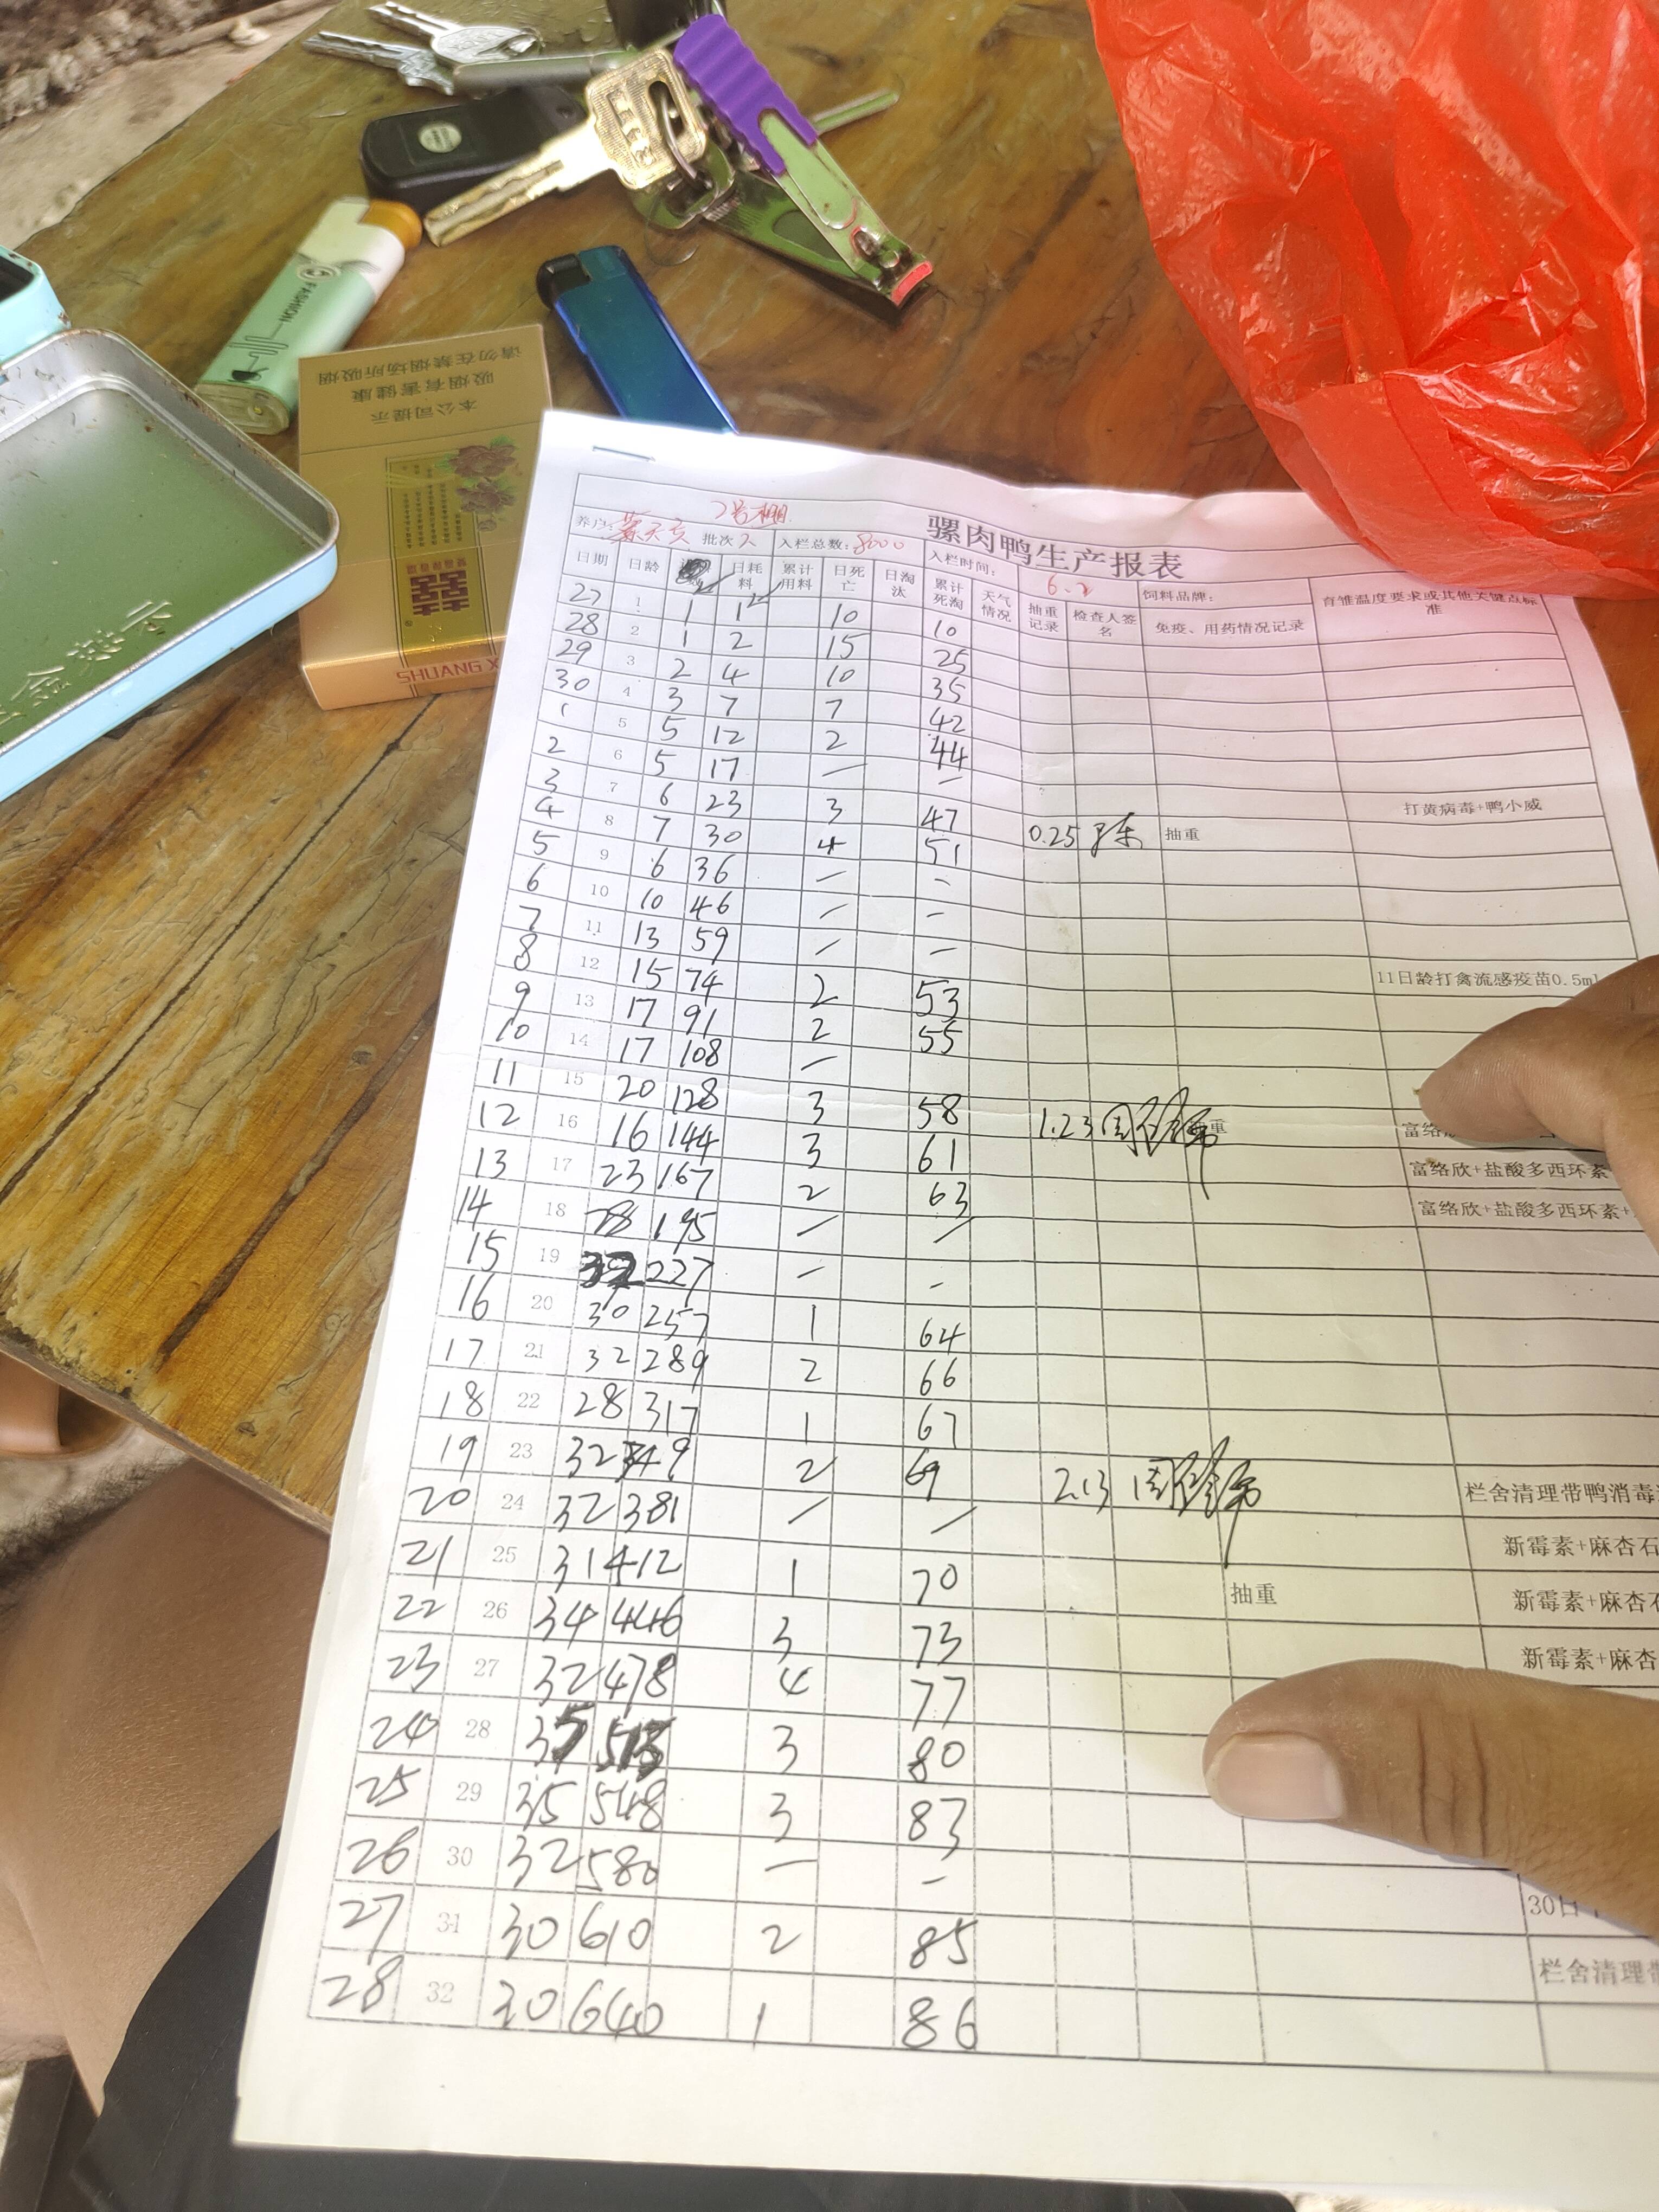 FASHION
本公司提示
吸烟有害健康
请勿在禁烟场所吸烟
SHUANG X
2号棚
骡肉鸭生产报表
养户: 批次 2 入栏总数:8000 入栏时间: 6.2 饲料品牌:
日期 日龄 日耗料 累计用料 日死亡 日淘汰 累计死淘 天气情况 抽重记录 检查人签名 免疫、用药情况记录 育雏温度要求或其他关键点标准
27 1 1 1 10 10
28 2 1 2 15 25
29 3 2 4 10 35
30 4 3 7 7 42
1 5 5 12 2 44
2 6 5 17 — —
3 7 6 23 3 47 打黄病毒+鸭小威
4 8 7 30 4 51 0.25 抽重
5 9 6 36 — —
6 10 10 46 — —
7 11 13 59 — —
8 12 15 74 2 53 11日龄打禽流感疫苗0.5ml
9 13 17 91 2 55
10 14 17 108 —
11 15 20 128 3 58 1.23 重 富络
12 16 16 144 3 61 富络欣+盐酸多西环素
13 17 23 167 2 63 富络欣+盐酸多西环素+
14 18 28 195 — —
15 19 32 227 — —
16 20 30 257 1 64
17 21 32 289 2 66
18 22 28 317 1 67
19 23 32 349 2 69 2.13 栏舍清理带鸭消毒
20 24 32 381 — —
21 25 31 412 1 70 新霉素+麻杏石
22 26 34 446 3 73 抽重 新霉素+麻杏石
23 27 32 478 4 77 新霉素+麻杏
24 28 35 513 3 80
25 29 35 548 3 83
26 30 32 580 — —
27 31 30 610 2 85 30日
28 32 30 640 1 86 栏舍清理带